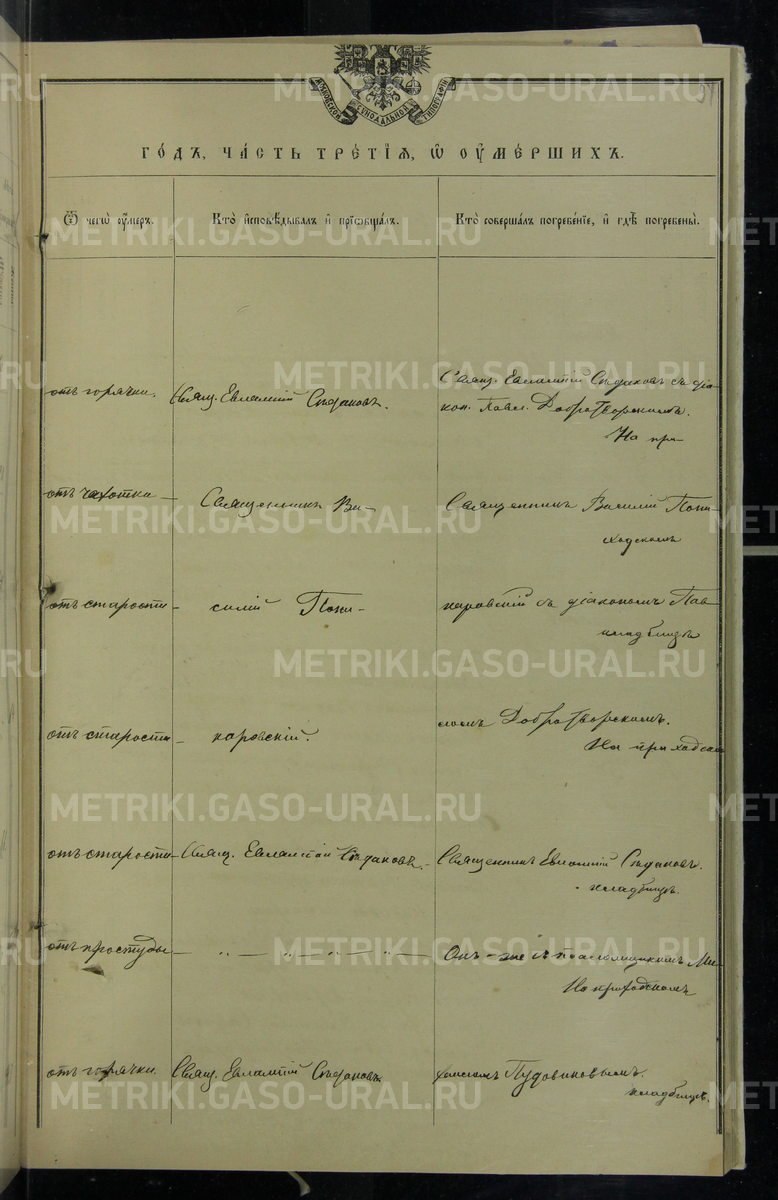 МОСКОВСКОЙ СѴНОДАЛЬНОЙ ТИПОГРАФІИ
ГО́ДЪ, ЧА́СТЬ ТРЕ́ТІѦ, Ѡ҆ ОУ҆МЕ́РШИХЪ.
Ѿ чегѡ̀ оу҆́меръ.
Кто̀ и҆сповѣ́дывалъ и҆ прїѡбща́лъ.
Кто̀ соверша́лъ погребе́нїе, и҆ гдѣ̀ погребены̀.
отъ горячки.
Свящ. Евлампій Сѣдаковъ.
Свящ. Евлампій Сѣдаковъ съ діа-
кон. Павл. Добротворскимъ.
На при-
отъ чахотки
Священникъ Ва-
Священникъ Василій Пони-
ходскомъ
отъ старости
силій Пони-
каровскій съ діакономъ Пав-
кладбищѣ
отъ старости
каровскій.
ломъ Добротворскимъ.
На приходском
отъ старости
Свящ. Евлампій Сѣдаковъ.
Священникъ Евлампій Сѣдаковъ.
кладбищѣ.
отъ простуды
Онъ-же съ псаломщикомъ Ми-
На приходскомъ
отъ горячки.
Свящ. Евлампій Сѣдаковъ
хаиломъ Пудовиковымъ.
кладбищѣ.
METRIKI.GASO-URAL.RU